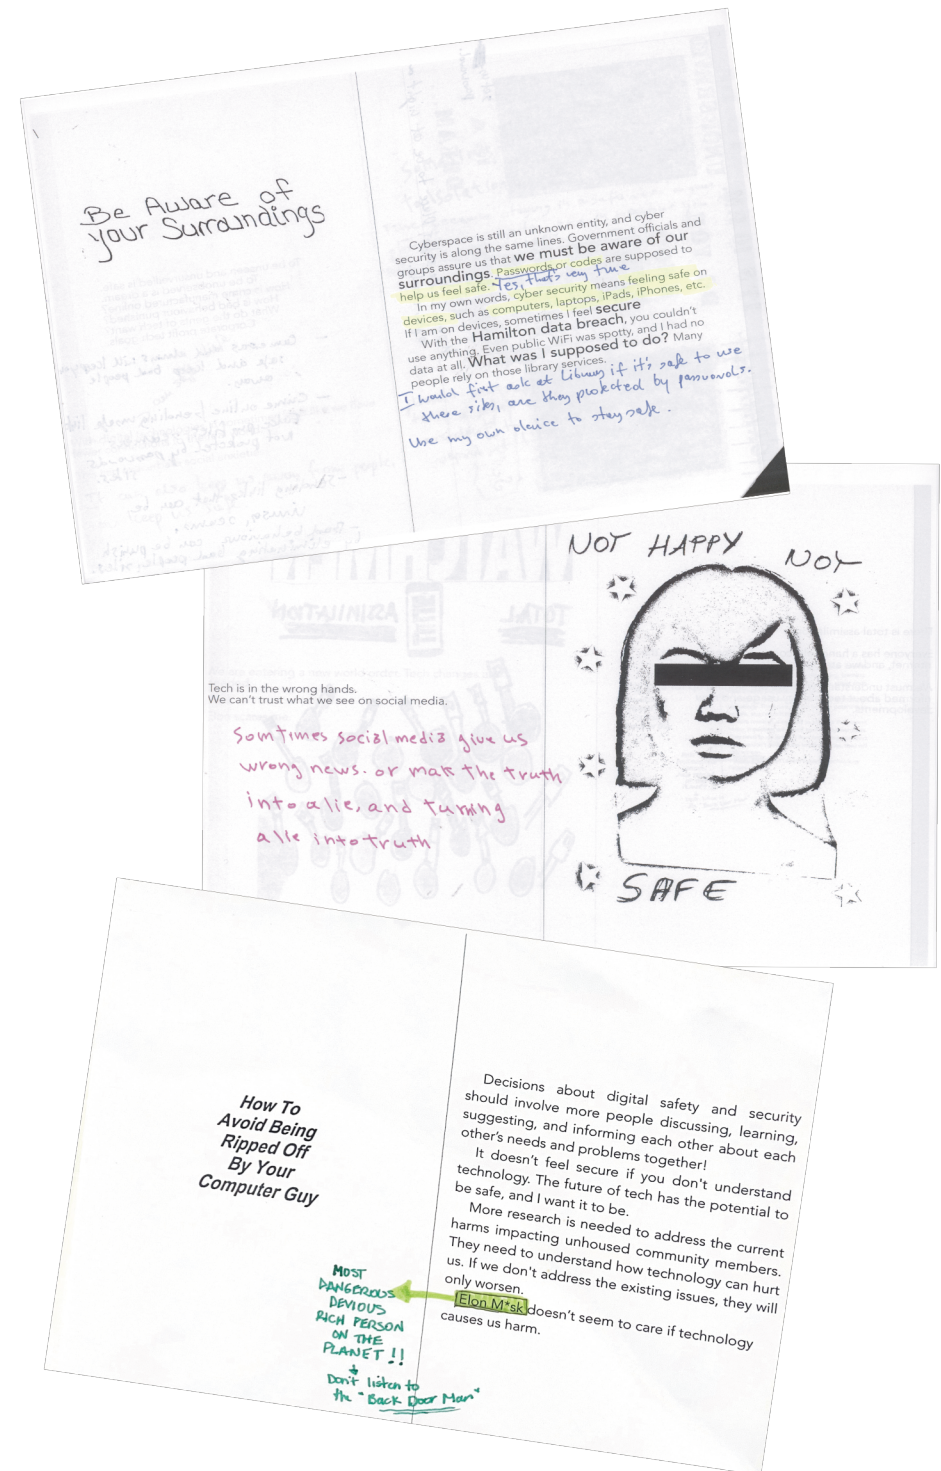 Be Aware of
your Surroundings
Cyberspace is still an unknown entity, and cyber
security is along the same lines. Government officials and
groups assure us that we must be aware of our
surroundings. Passwords or codes are supposed to
help us feel safe. Yes, that's very true
In my own words, cyber security means feeling safe on
devices, such as computers, laptops, iPads, iPhones, etc.
If I am on devices, sometimes I feel secure
With the Hamilton data breach, you couldn't
use anything. Even public WiFi was spotty, and I had no
data at all. What was I supposed to do? Many
people rely on those library services.
I would first ask at Library if it's safe to use
there sites, are they protected by passwords.
Use my own device to stay safe.
TOTAL
ASSIMILATION
Tech is in the wrong hands.
We can't trust what we see on social media.
Somtimes social media give us
wrong news. or mak the truth
into a lie, and turning
a lie into truth
NOT HAPPY NOY
SAFE
How To
Avoid Being
Ripped Off
By Your
Computer Guy
MOST
DANGEROUS
DEVIOUS
RICH PERSON
ON THE
PLANET!!
Don't listen to
the "Back Door Man"
Decisions about digital safety and security
should involve more people discussing, learning,
suggesting, and informing each other about each
other's needs and problems together!
It doesn't feel secure if you don't understand
technology. The future of tech has the potential to
be safe, and I want it to be.
More research is needed to address the current
harms impacting unhoused community members.
They need to understand how technology can hurt
us. If we don't address the existing issues, they will
only worsen.
Elon M*sk doesn't seem to care if technology
causes us harm.